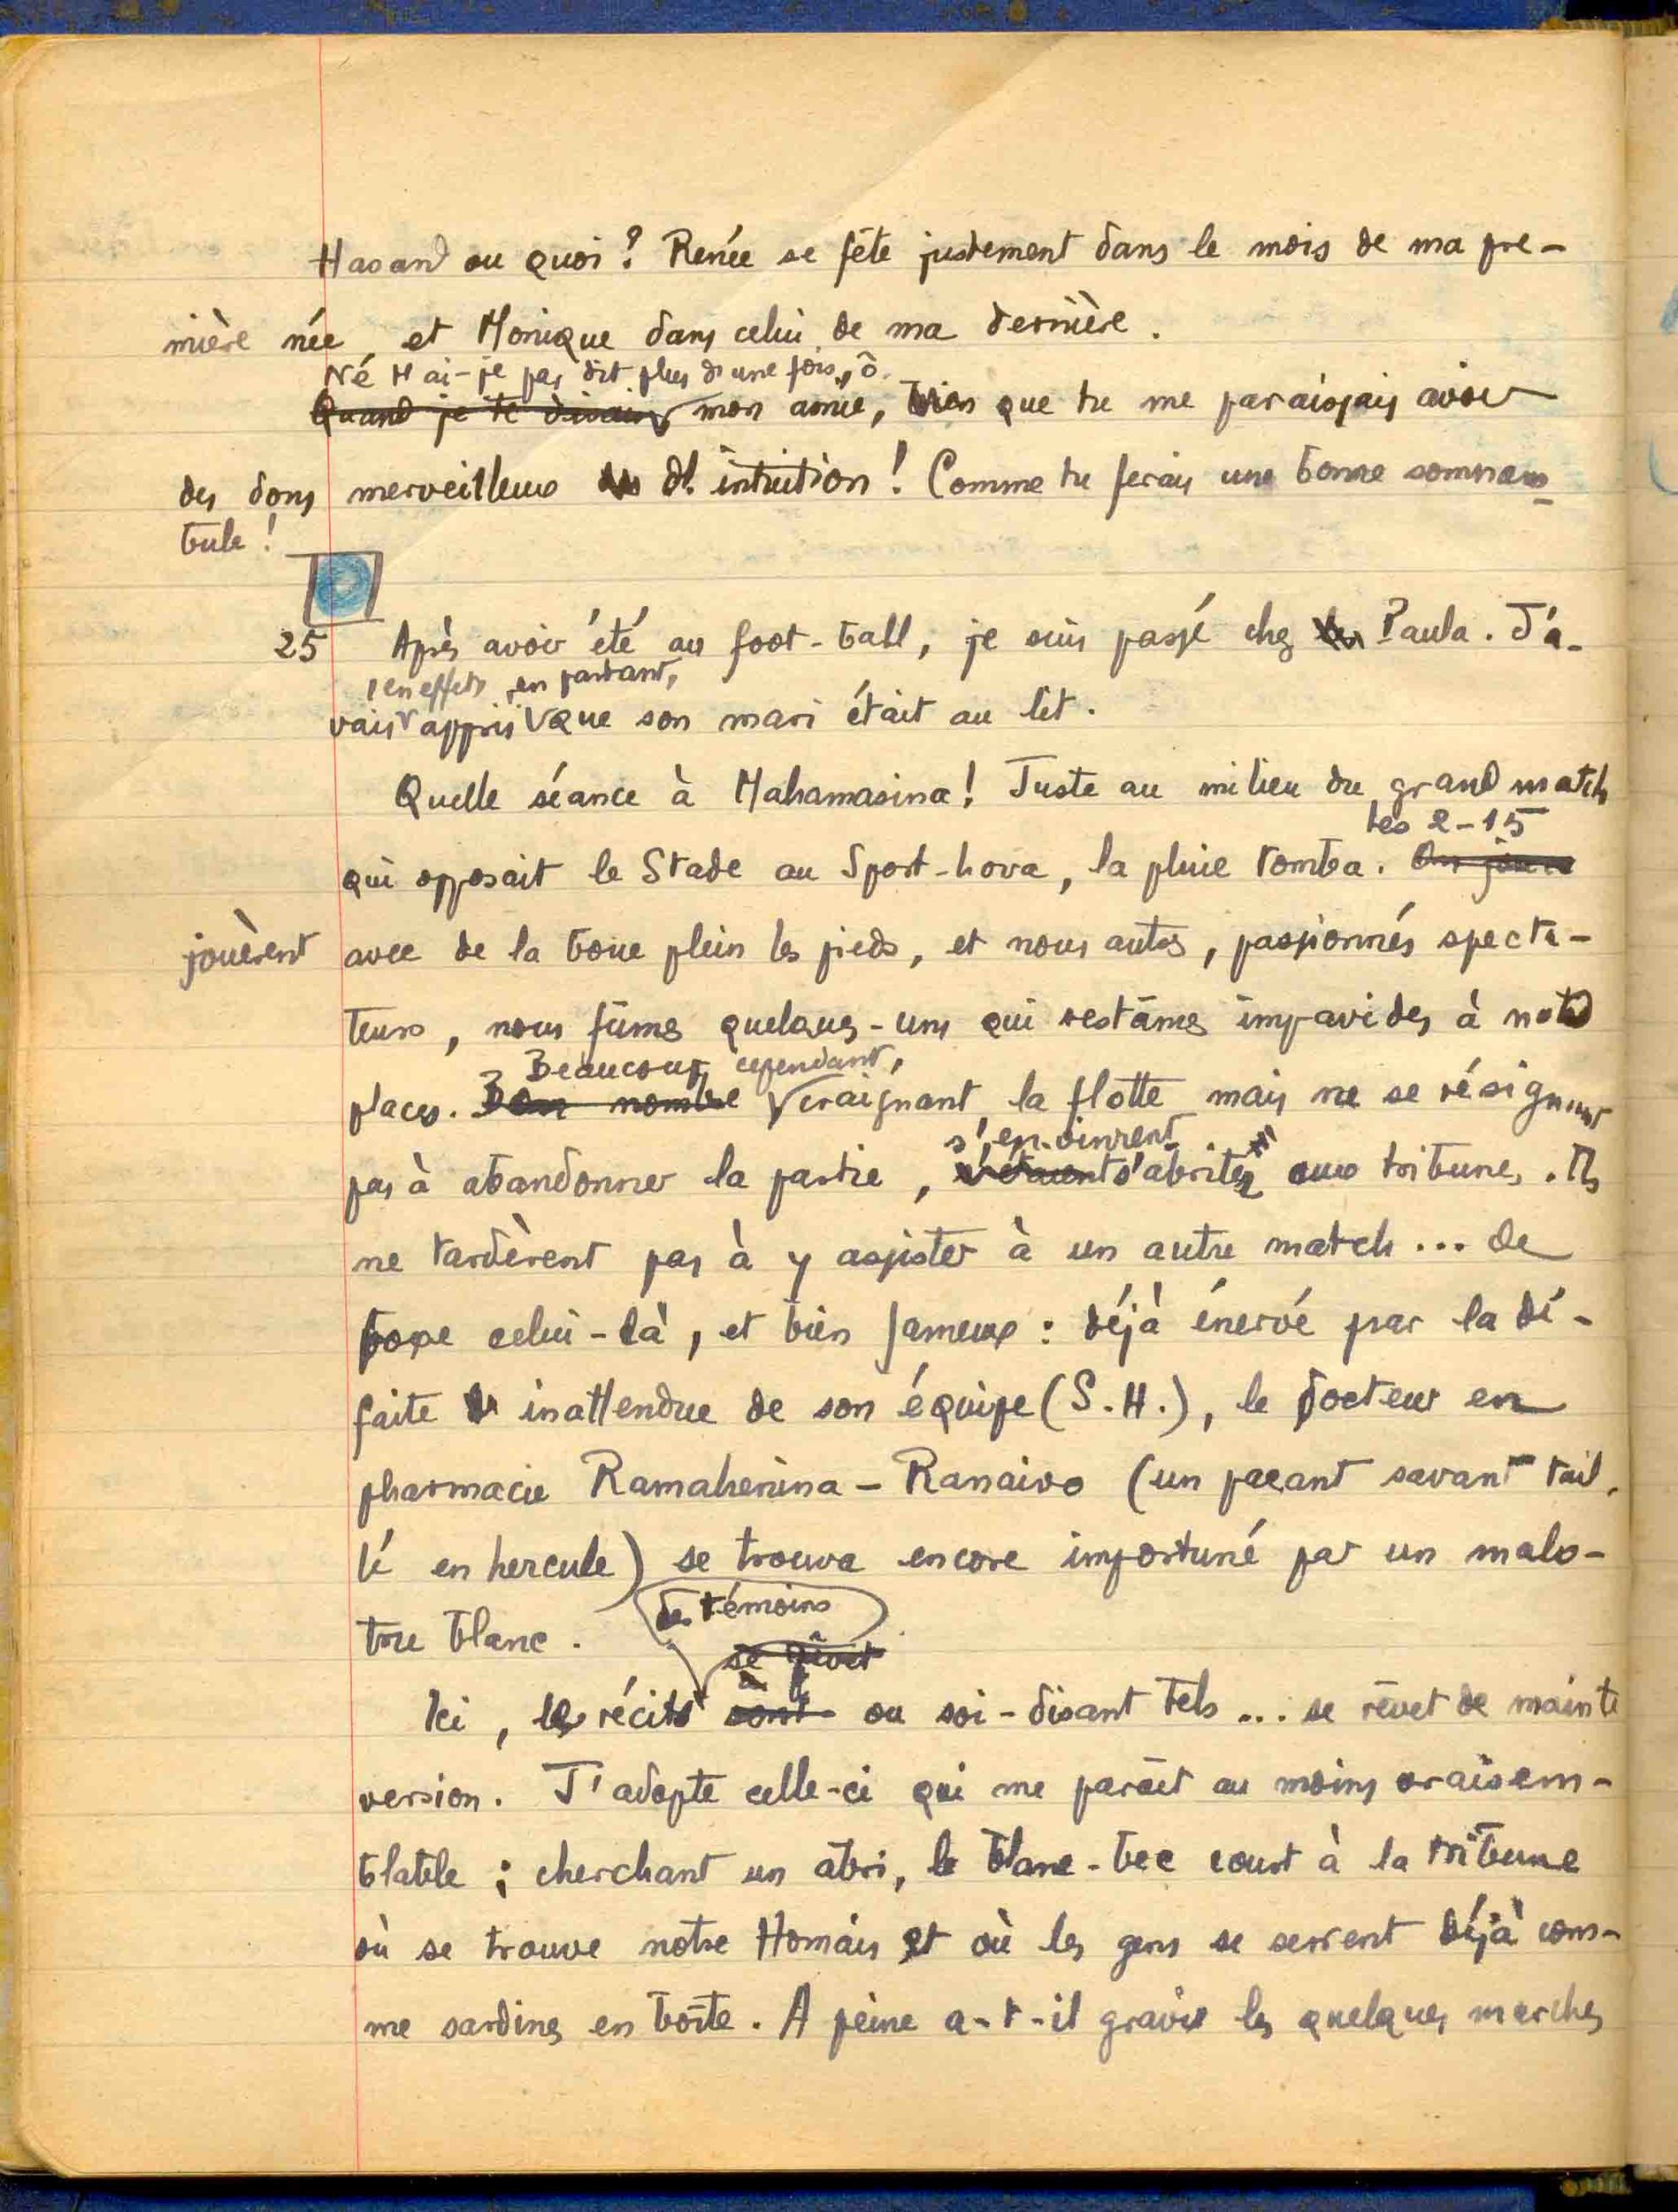 Hasard ou quoi ? Renée se fête justement dans le mois de ma pre-
mière née et Monique dans celui de ma dernière.
Né t'ai-je pas dit plus d'une fois, ô
Quand je te disais mon amie, bien que tu me paraissais avoir
des dons merveilleux d'intuition ! Comme tu ferais une bonne somnam-
bule !
25 Après avoir été au foot-ball, je suis passé chez Paula. J'a-
, en effet, en partant,
vais appris que son mari était au lit.
Quelle séance à Mahamasina ! Juste au milieu du grand match
les 2-15
qui opposait le Stade au Sport-hova, la pluie tomba. On joua
jouèrent avec de la boue plein les pieds, et nous autres, passionnés specta-
teurs, nous fûmes quelques-uns qui restâmes impavides à nos
places. Bon nombre craignant la flotte mais ne se résignant
Beaucoup, cependant,
s'en vinrent
pas à abandonner la partie, s'abriter aux tribunes. Ils
ne tardèrent pas à y assister à un autre match ... de
boxe celui-là, et bien fameux : déjà énervé par la dé-
faite inattendue de son équipe (S.H.), le docteur en
pharmacie Ramaherina - Ranaivo (un savant tail-
lé en hercule) se trouva encore importuné par un malo-
tru blanc.
des témoins
se rêvet
Ici, le récit sont ou soi-disant tels ... se rêvet de mainte
version. J'adopte celle-ci qui me paraît au moins vraisem-
blable ; cherchant un abri, le blanc-bec court à la tribune
où se trouve notre Homais et où les gens se serrent déjà com-
me sardines en boîte. A peine a-t-il gravi les quelques marches